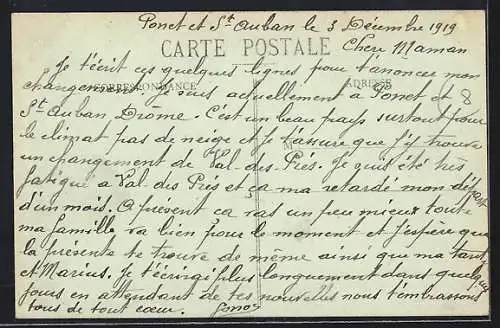 Ponet et St Auban le 3 Décembre 1919
CARTE POSTALE
Chere Maman
Je t'écrit ces quelques lignes pour t'anoncer mon
CORRESPONDANCE ADRESSE
changement je suis actuellement à Ponet et
St Auban Drôme. C'est un beau pays surtout pour
le climat pas de neige et je t'assure que j'y trouve
un changement de Val-des-Prés. Je suis été très
fatigué à Val des Prés et ça ma retardé mon départ
d'un mois. A présent ca vas un peu mieux toute
ma famille va bien pour le moment et j'espère que
la présente te trouve de même ainsi que ma tante
et Marius. Je t'écrirai plus longuement dans quelques
jours en attendant de tes nouvelles nous t'embrassons
tous de tout cœur.